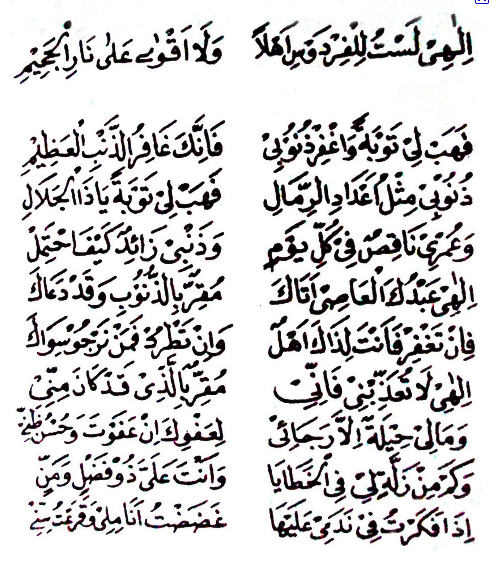 اِلٰهِيْ لَسْتُ لِلْفِرْدَوْسِ اَهْلًا وَلَا اَقْوٰى عَلٰى نَارِ الْجَحِيْمِ
فَهَبْ لِيْ تَوْبَةً وَاغْفِرْ ذُنُوْبِيْ فَاِنَّكَ غَافِرُ الذَّنْبِ الْعَظِيْمِ
ذُنُوْبِيْ مِثْلُ اَعْدَادِ الرِّمَالِ فَهَبْ لِيْ تَوْبَةً يَاذَا الْجَلَالِ
وَعُمْرِيْ نَاقِصٌ فِيْ كُلِّ يَوْمٍ وَذَنْبِيْ زَائِدٌ كَيْفَ احْتِمَالِ
اِلٰهِيْ عَبْدُكَ الْعَاصِيْ اَتَاكَ مُقِرًّا بِالذُّنُوْبِ وَقَدْ دَعَاكَ
فَاِنْ تَغْفِرْ فَاَنْتَ لِذَاكَ اَهْلٌ وَاِنْ تَطْرُدْ فَمَنْ نَرْجُوْ سِوَاكَ
اِلٰهِيْ لَا تُعَذِّبْنِيْ فَاِنِّيْ مُقِرٌّ بِالَّذِيْ قَدْ كَانَ مِنِّيْ
وَمَالِيْ حِيْلَةٌ اِلَّا رَجَائِيْ لِعَفْوِكَ اِنْ عَفَوْتَ وَحُسْنُ ظَنِّيْ
وَكَمْ مِنْ زَلَّةٍ لِيْ فِي الْخَطَايَا وَاَنْتَ عَلَيَّ ذُوْ فَضْلٍ وَمَنِّ
اِذَا فَكَرْتُ فِيْ نَدَمِيْ عَلَيْهَا غَضَضْتُ اَنَامِلِيْ وَقَرَعْتُ سِنِّيْ